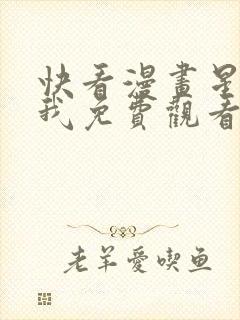 快看漫畫星
我免費觀看
老羊愛喫鱼